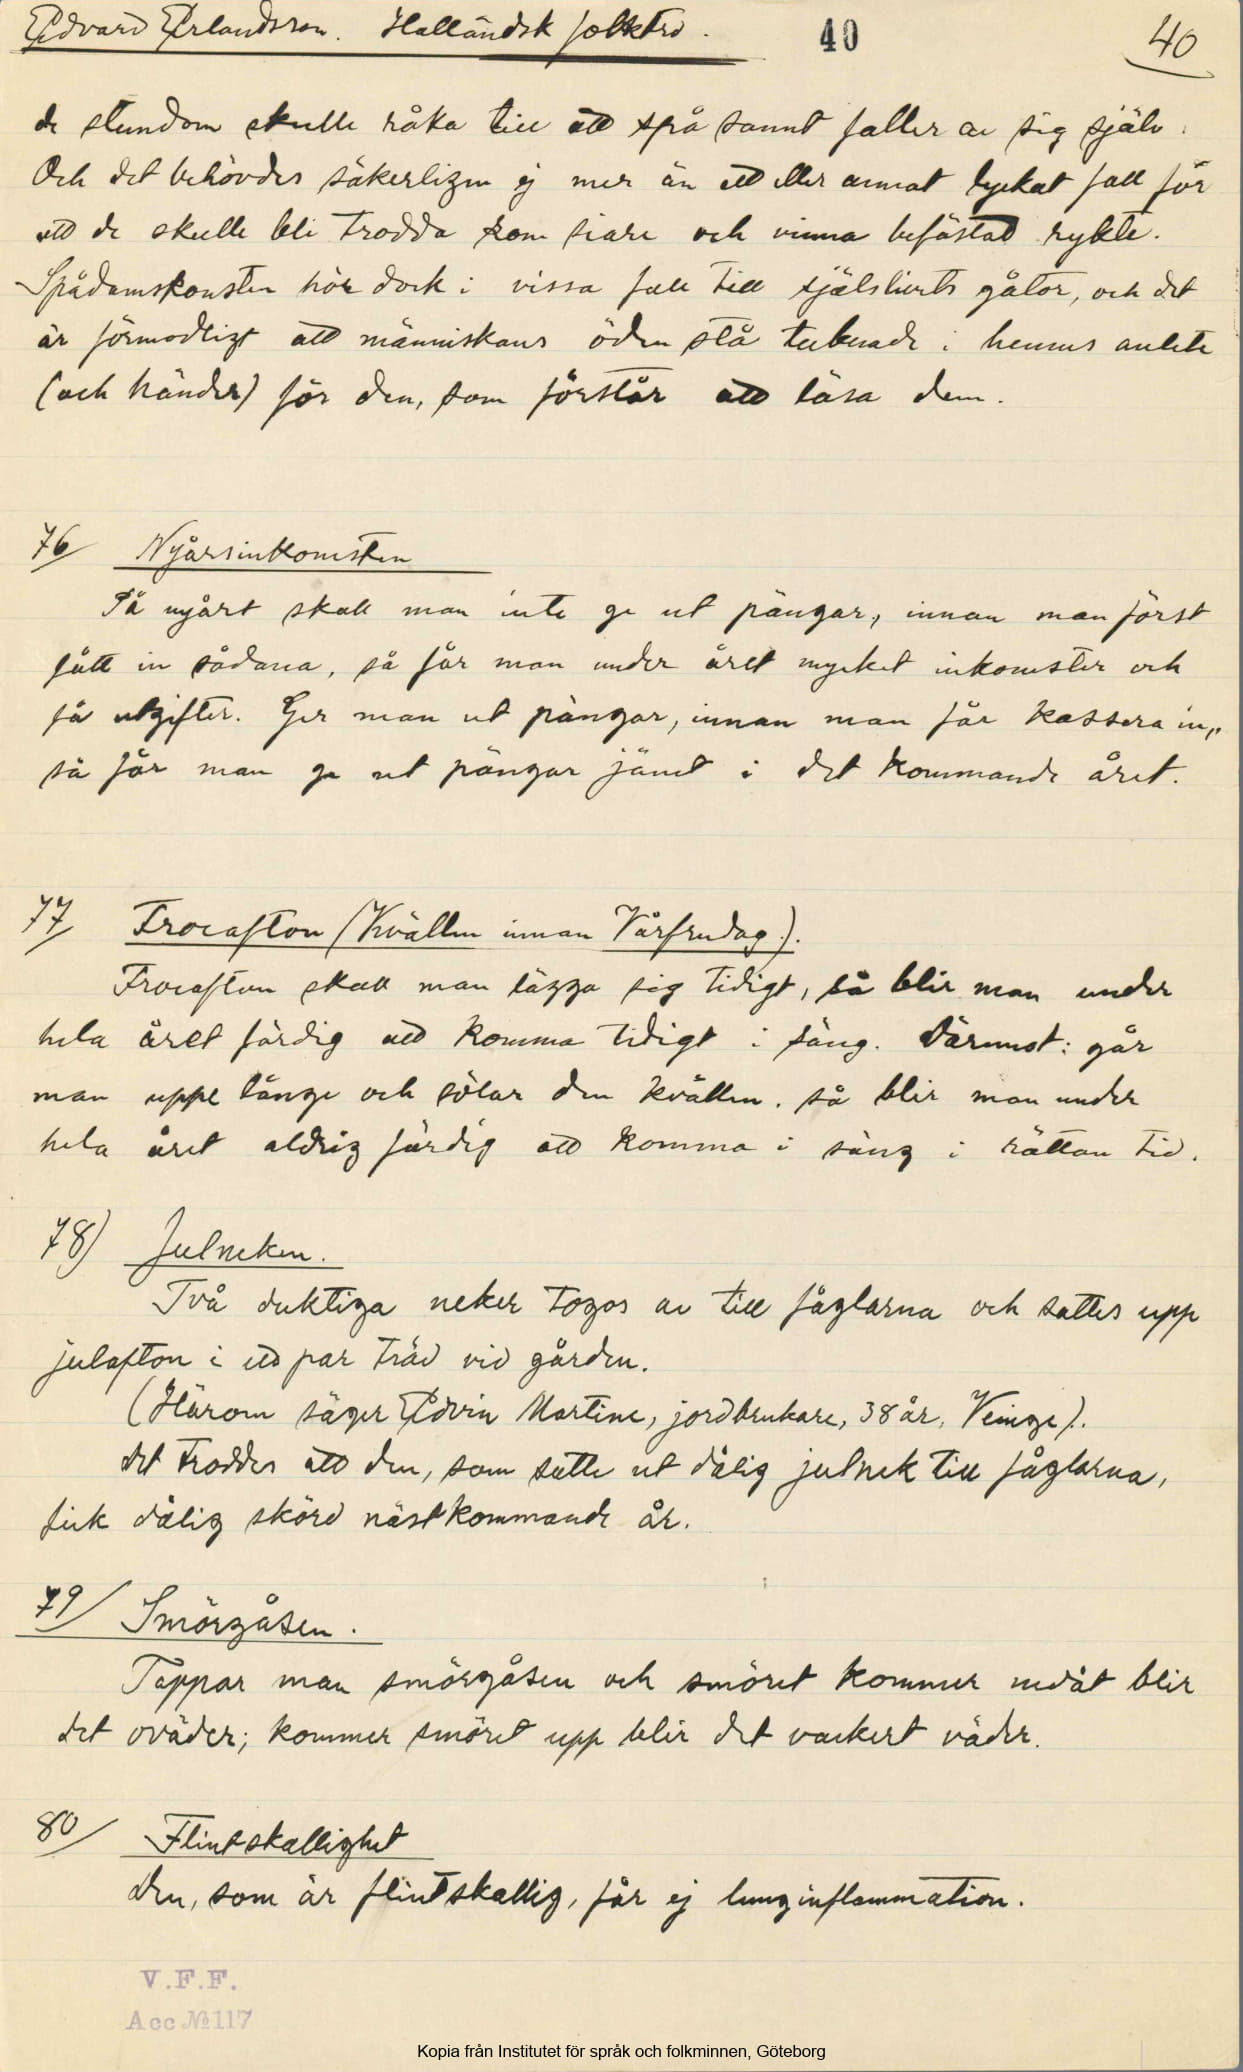 Edvard Erlandsson. Halländsk folktro. 40 40
de stundom skulle råka till att spå sannt faller av sig själv.
Och det behövdes säkerligen ej mer än ett eller annat lyckat fall för
att de skulle bli trodda som siare och vinna befästad rykte.
Spådomskonsten hör dock i vissa fall till själslivets gåtor, och det
är förmodligt att människans öden stå tecknade i hennes anlete
(och händer) för den, som förstår att läsa dem.
76/ Nyårsinkomsten
På nyårt skall man inte ge ut pängar, innan man först
fått in sådana, så får man under året mycket inkomster och
få utgifter. Ger man ut pängar, innan man får kassera in,
så får man ge ut pängar jämt i det kommande året.
77/ Froeafton (Kvällen innan Vårfrudag).
Froeafton skall man lägga sig tidigt, så blir man under
hela året färdig att komma tidigt i säng. Däremot: går
man uppe länge och sölar den kvällen, så blir man under
hela året aldrig färdig att komma i säng i rättan tid.
78) Julneken.
Två duktiga neker togos av till fåglarna och sattes upp
julafton i ett par träd vid gården.
(Härom säger Edvin Martine, jordbrukare, 38 år, Veinge).
det troddes att den, som satte ut dålig julnek till fåglarna,
fick dålig skörd nästkommande år.
79/ Smörgåsen.
Tappar man smörgåsen och smöret kommer nedåt blir
det oväder; kommer smöret upp blir det vackert väder.
80/ Flintskallighet
den, som är flintskallig, får ej lunginflammation.
V.F.F.
Acc № 117
Kopia från Institutet för språk och folkminnen, Göteborg